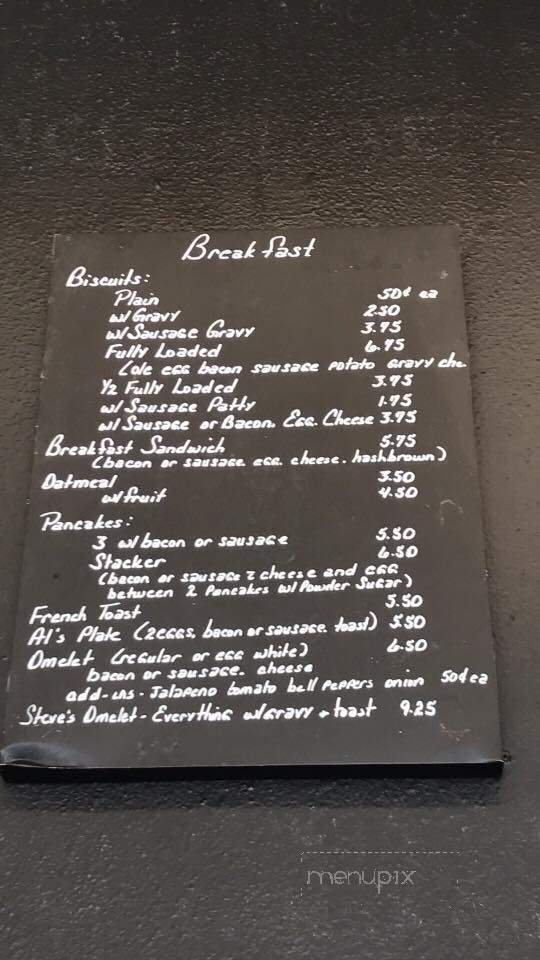 Breakfast
Biscuits:
Plain 50¢ ea
w/ Gravy 2.50
w/ Sausage Gravy 3.75
Fully Loaded 6.75
egg bacon sausage potato gravy che
1/2 Fully Loaded 3.75
w/ Sausage Patty 1.75
w/ Sausage or Bacon, Egg, Cheese 3.75
Breakfast Sandwich 5.75
(bacon or sausage, egg, cheese, hashbrown)
Oatmeal 3.50
w/ fruit 4.50
Pancakes:
3 w/ bacon or sausage 5.50
Stacker 6.50
(bacon or sausage cheese and egg
between 2 Pancakes w/ Powder Sugar)
French Toast 5.50
Al's Plate (2 eggs, bacon or sausage, toast) 5.50
Omelet (regular or egg white) 6.50
bacon or sausage, cheese
add-ons - Jalapeno tomato bell peppers onion 50¢ ea
Steve's Omelet - Everything w/ gravy + toast 9.25
menupix